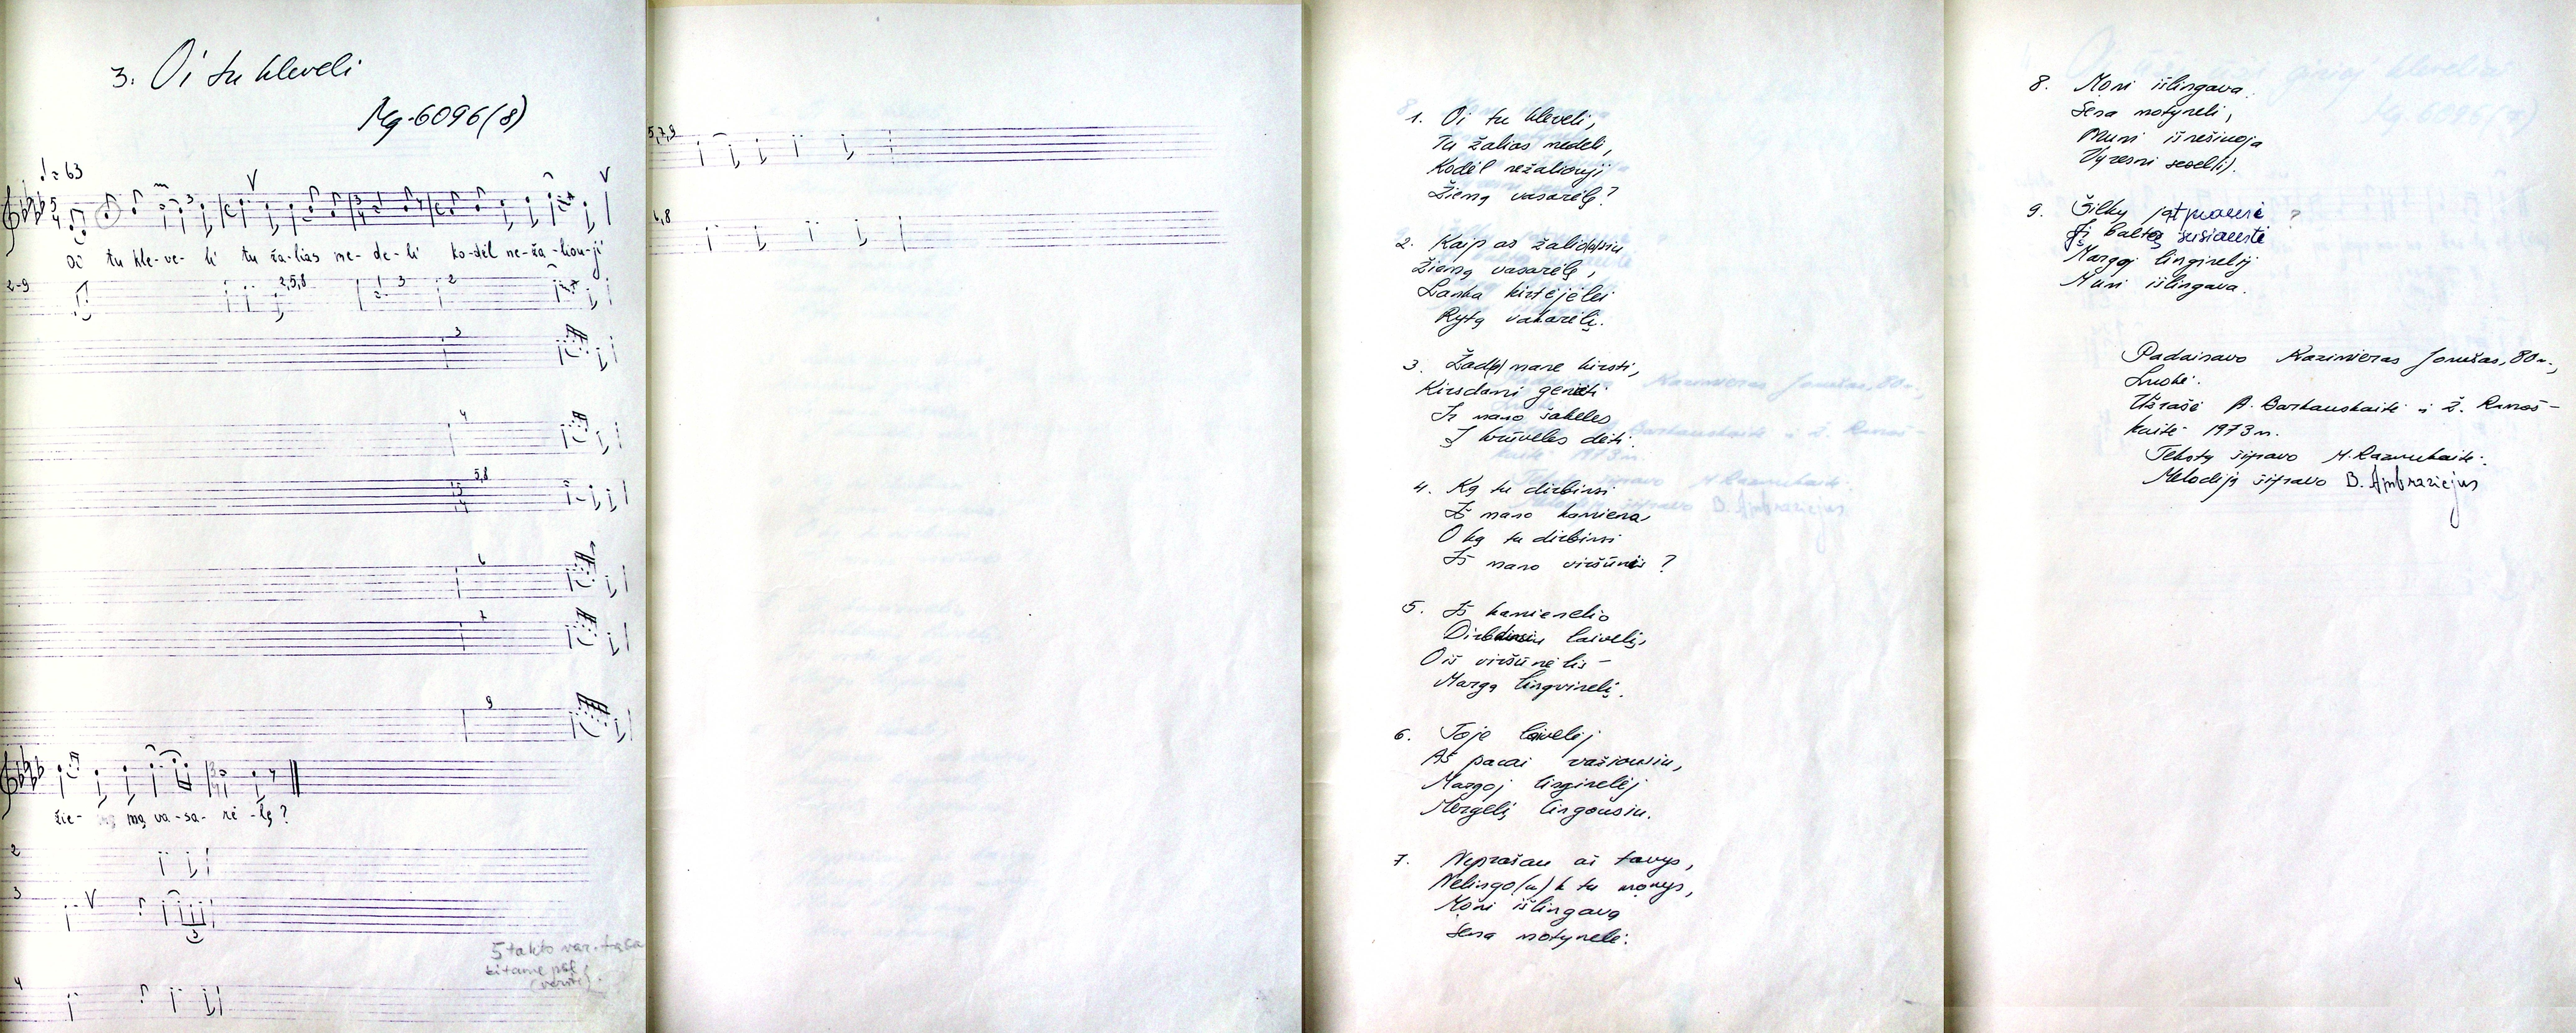 3. Oi tu kleveli
Mg. 6096(8)
♩ = 63
Oi tu kle-ve-li tu ža-lias me-de-li ko-dėl ne-ža-liou-ji
2-9
2,5,8
3
2
3
4
5,8
6
7
9
žie- mą va-sa-rė-lę?
2
3
4
5 takto var. tąsa
kitame psl.
5,7,9
6,8
1. Oi tu kleveli,
Tu žalias medeli,
Kodėl nežaliouji
Žiemą vasarėlę?
2. Kaip aš žaliuosiu
Žiemą vasarėlę,
Lanka kirtėjėlei
Rytą vakarėlį.
3. Žad(a) mane kirsti,
Kirsdami genėti
Ir mano šakeles
Į krūveles dėti.
4. Ką tu dirbinsi
Iš mano kamiena,
O ką tu dirbinsi
Iš mano viršūnis?
5. Iš kamienelio
Dirbdinsiu laivelį,
O iš viršūnėlis –
Margą lingvinelį.
6. Toje laivelėj
Aš pacai važiousiu,
Margoj linginelėj
Mergelį lingousiu.
7. Neprašau aš tavys,
Nelingo(u)k tu monys,
Moni išlingava
Sena motynelė.
8. Moni išlingava
Sena motyneli,
Muni išnešiuoja
Vyresni sesel(i).
9. Šilkų
Margoj linginelėj
Muni išlingava.
Padainavo Kazimieras Jonušas, 80 m.,
Luokė.
Užrašė A. Barkauskaitė ir Ž. Ramoš-
kaitė 1973 m.
Tekstą šifravo M. Razmukaitė.
Melodiją šifravo B. Ambraziejus